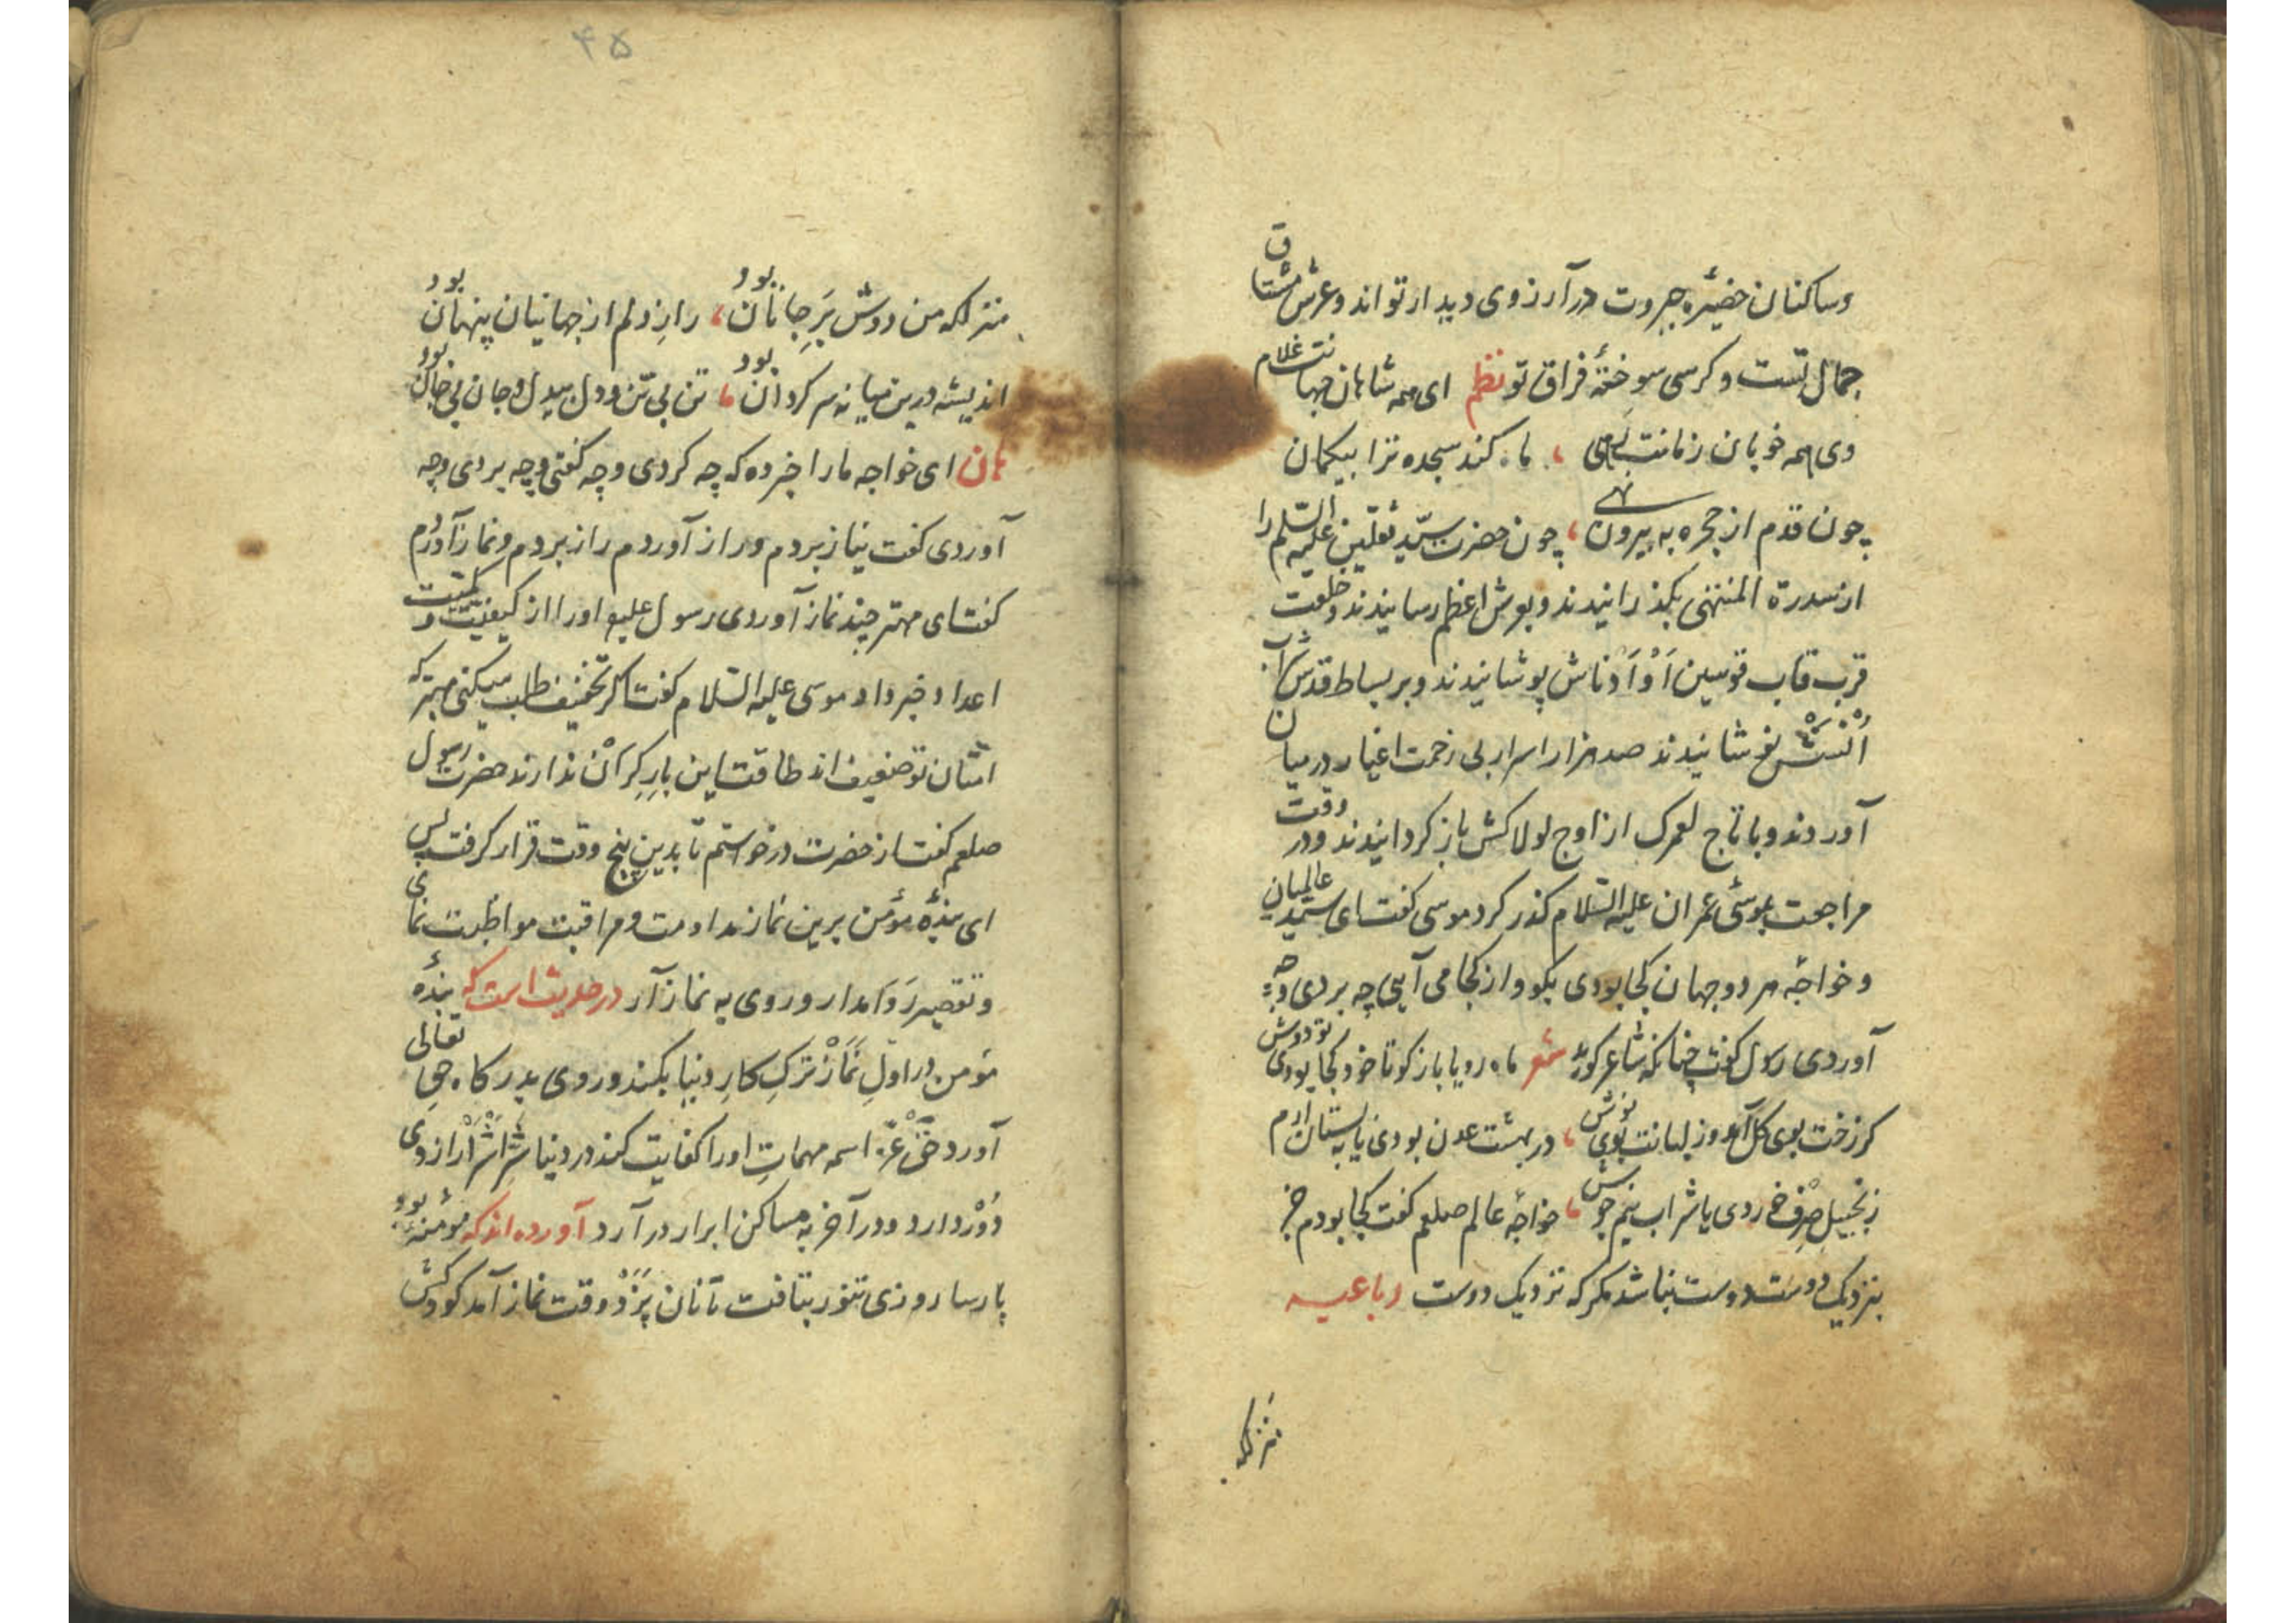 وساكنان حضیرۀ جبروت در آرزوی دیدار تواند وعرش مشتاق
جمال تست و کرسی سوختۀ فراق تو نظم ای همه شاهان جهانت غلام
وی همه خوبان زمانت رهی ، ماه کند سجده ترا بیکمان
چون قدم از حجره به بیرون نهی ، چون حضرت سیّد ثقلین علیه السّلم را
از سدرة المنتهی بکذرانیدند و بعرش اعظم رسانیدند و خلعت
قرب قاب قوسین اَوْ اَدْناش پوشانیدند و بر بساط قدس شراب
اُنْسَشْ نوشانیدند صد هزار اسرار بی زحمت اغیار در میان
آوردند و با تاج لعمرک از اوج لولاکش باز کردانیدند و در وقت
مراجعت بموسیٔ عمران علیه السّلام کذر کرد موسی کفت ای سیّد عالمیان
و خواجۀ هر دو جهان کجا بودی بکو و از کجا می آیی چه بردی و چه
آوردی رسول کفت چنانکه شاعر کوید شعر ماه رویا باز کو تا خود کجا بودی تو دوش
کز رخت بوی کل آمد وز لبانت بوی نوش ، در بهشت عدن بودی یا به بستان ارم
زنجبیلِ صِرْف خوردی یا شراب نیم جوش ، خواجۀ عالم صلعم کفت کجا بودم جز
بنزدیک دوست دوست نباشد مکر که نزدیک دوست رباعیه
منزلکه
۴۵
منزلکه من دوش بَرِ جانان بود ، رازِ دلم از جهانیان پنهان بود
اندیشه درین میانه سرکردان بود ، تن بی تن و دل بیدل و جان بی جان بود
هان ای خواجه ما را خبر ده که چه کردی و چه کفتی و چه بردی و چه
آوردی کفت نیاز بردم و راز آوردم راز بردم و نماز آوردم
کفت ای مهتر چند نماز آوردی رسول علیه او را از کیفیّت و کمّیّت
اعداد خبر داد موسی علیه السّلام کفت اکر تخفیف طلب میکنی بهتر که
امّتان تو ضعیف اند طاقت این بارِ کران ندارند حضرت رسول
صلعم کفت از حضرت درخواستم تا بدین پنج وقت قرار کرفت پس
ای بندۀ مؤمن برین نماز مداومت و مراقبت مواظبت نمای
و تقصیر رَوَا مدار و روی به نماز آر در حدیث است که بندۀ
مؤمن در اوّلِ نَمَازْ تَرْکِ کارِ دنیا بکند و روی بدرکاه حق تعالی
آورد حقّ عزّ اسمه مهماتِ او را کفایت کند در دنیا شرِّ اشْرَارْ از وی
دُوْر دارد و در آخر به مساکن ابرار در آرد آورده اند که مؤمنۀ بود
پارسا روزی تنور بتافت تا نان پَزَدْ وقت نماز آمد کودکش